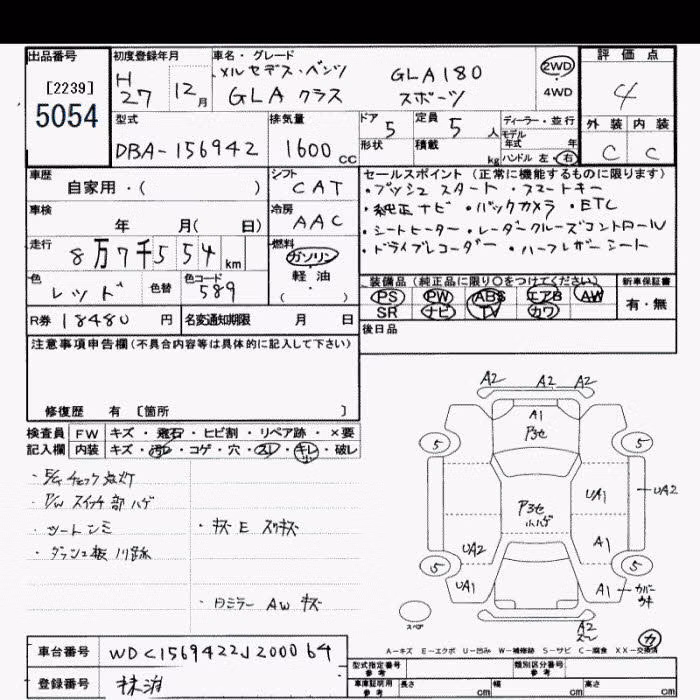 出品番号 初度登録年月 車名・グレード 評価点
[2239] 5054
H27 12月
メルセデス・ベンツ GLA180
GLAクラス スポーツ
2WD
4WD
4
外装 内装
C C
型式 排気量 ドア 5 定員 5 人 ディーラー・並行
DBA-156942 1600 cc
形状 積載 kg モデル年式 年
ハンドル 左・右
車歴 自家用・( )
シフト CAT
セールスポイント (正常に機能するものに限ります)
・プッシュスタート ・スマートキー
・純正ナビ ・バックカメラ ・ETC
・シートヒーター ・レーダークルーズコントロール
・ドライブレコーダー ・ハーフレザーシート
車検 年 月( 日)
冷房 AAC
走行 8万7千554km
燃料 ガソリン・軽油・( )
色 レッド 色替 色コード 589
装備品 (純正品に限り○をつけてください) 新車保証書
PS PW ABS エアB AW 有・無
SR ナビ TV カワ
R券 18480円 名変通知期限 月 日
後日品
注意事項申告欄(不具合内容等は具体的に記入して下さい)
修復歴 有 [箇所 ]
検査員 FW キズ・飛石・ヒビ割・リペア跡・×要
記入欄 内装 キズ・汚レ・コゲ・穴・スレ・キレ・破レ
・E/Gチェック点灯
・P/Wスイッチ部ハゲ
・シートシミ
・キズ E スリキズ
・ダッシュ板
・ロミラー AW キズ
A2 A2 A2
A1
P3セ
5 5
UA1 UA2
P3セ
小ハゲ
UA2 A1
5 5
UA1 A1 カバーウキ
スペア
A2
カ
A-キズ E-エクボ U-凹み W-補修跡 S-サビ C-腐食 XX-交換済
車台番号 WDC1569422J200064
登録番号 抹消
型式指定番号 参考 類別区分番号 参考
車庫証明用 参考 長さ cm 幅 cm 高さ cm